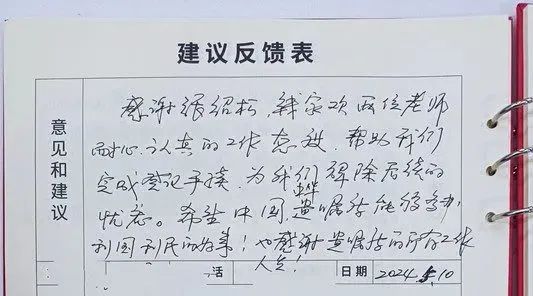 建议反馈表
意见和建议
感谢张绍松,钱家欢两位老师
耐心、认真的工作态度,帮助我们
完成登记手续,为我们解除后续的
忧虑。希望中国中华遗嘱库能够多办
利国利民的好事!也感谢遗嘱库的所有工作
人员!
活
日期 2024.5.10